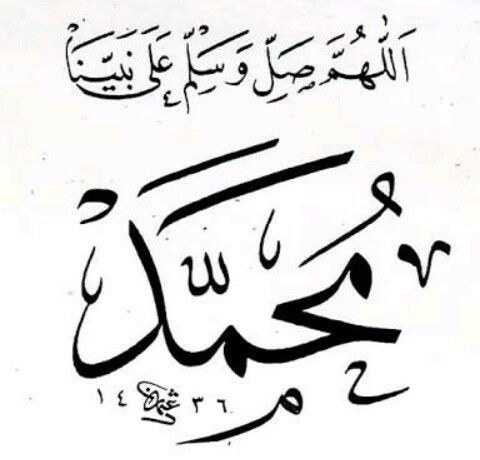 اَللّٰهُمَّ صَلِّ وَسَلِّمْ عَلَى نَبِيِّنَا
مُحَمَّدْ
١٤٣٦